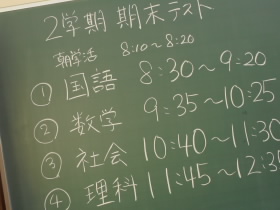 2学期 期末テスト
朝学活 8:10～8:20
① 国語 8:30～9:20
② 数学 9:35～10:25
③ 社会 10:40～11:30
④ 理科 11:45～12:35